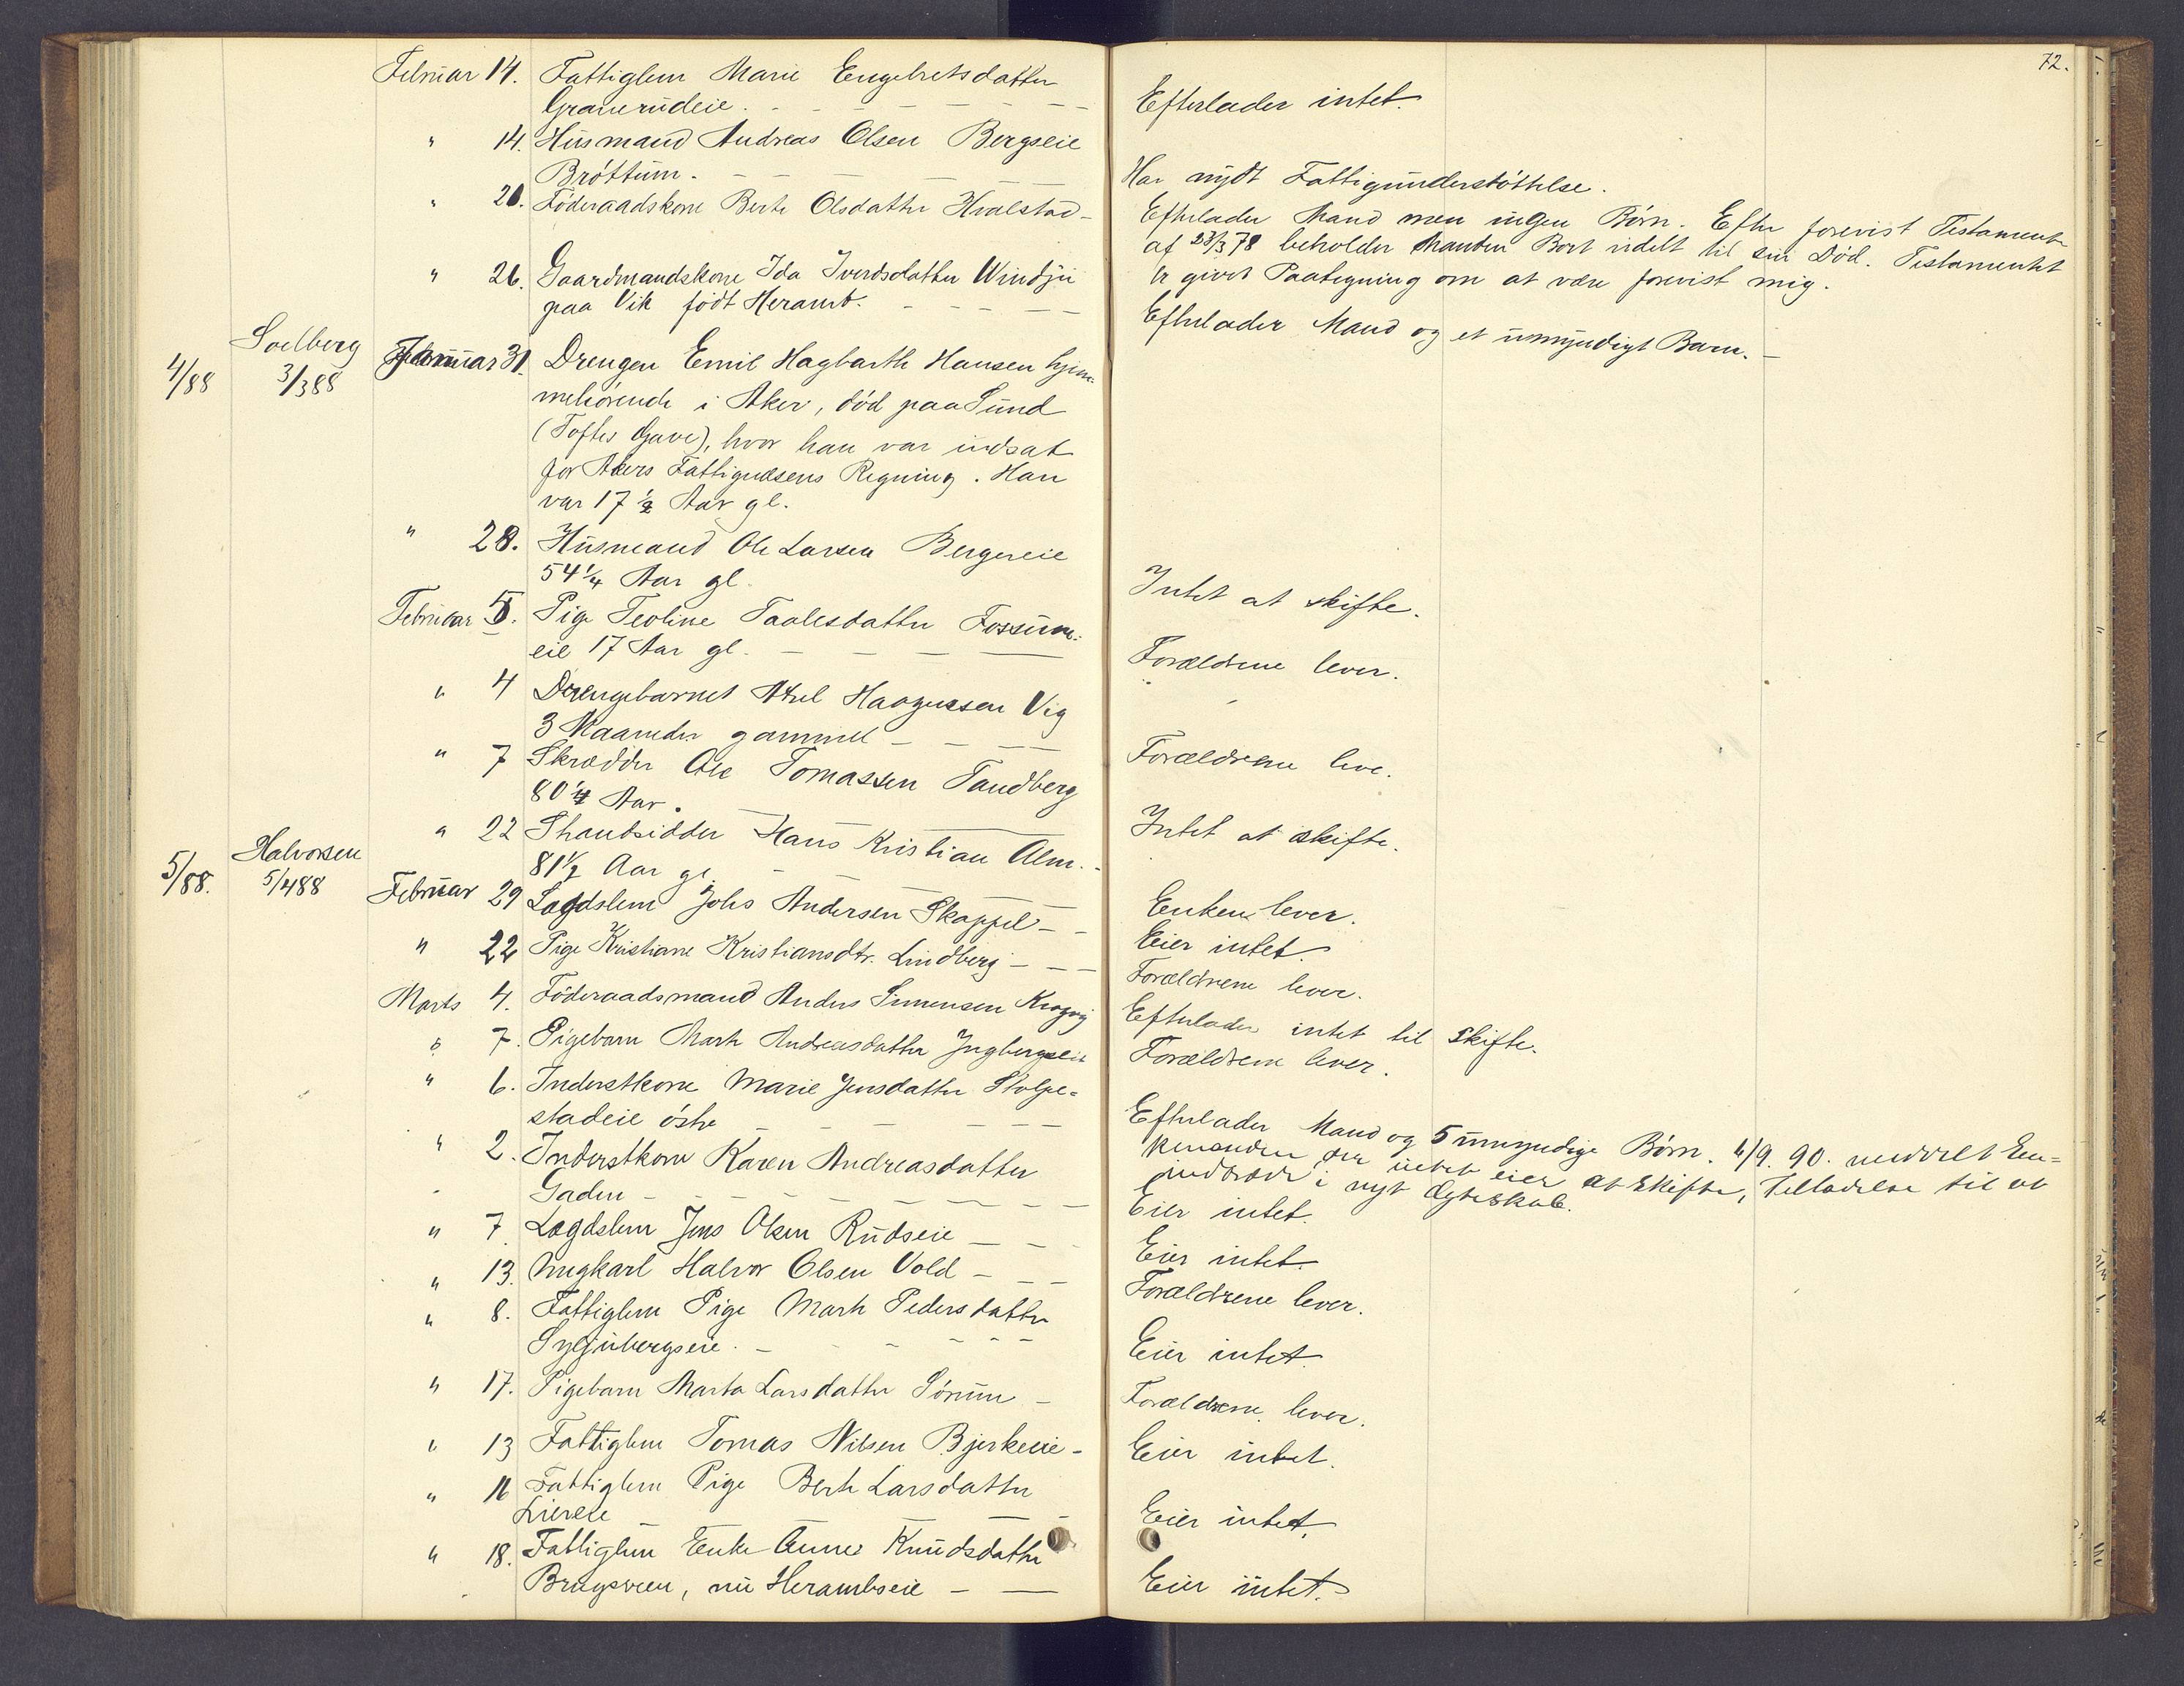 72.
Februar 14. Fattiglem Marie Engebretsdatter
Graverudeie. - - - - - -
Efterlader intet.
" 14. Husmand Andreas Olsen Bergseie
Bröttum. - - - - -
Har nydt Fattigunderstöttelse.
" 20. Föderaadskone Berte Olsdatter Hvalstad -
Efterlader Mand men ingen Børn. Efter forevist Testamente
af 23/3 78 beholder Manden Boet udelt til sin Död. Testamentet
er givet Paategning om at være forevist mig.
" 26. Gaardmandskone Ida Iversdatter Windju
paa Vik født Heramb. - - - - -
Efterlader Mand og et umyndigt Barn. -
4/88 Soelberg
3/3 88
Januar 31. Drengen Emil Hagbarth Hansen hjem-
mehörende i Aker, död paa Sund
(Toftes Gave), hvor han var indsat
for Akers Fattigvæsens Regning. Han
var 17 1/2 Aar gl.
" 28. Husmand Ole Larsen Bergereie
54 1/4 Aar gl.
Intet at skifte.
Februar 5. Pige Teoline Paalesdatter Fossum-
eie 17 Aar gl. - - - -
Forældrene lever.
" 4 Drengebarnet Axel Haagensen Vig
3 Maaneder gammel - - -
Forældrene leve.
" 7 Skrædder Ole Tomassen Sandberg
80 1/4 Aar.
Intet at skifte.
" 22 Strandsidder Hans Kristian Alm. -
81 1/2 Aar gl. - - -
Enken lever.
5/88. Halvorsen
5/4 88
Februar 29 Lægdslem Johs Andersen Skappel - -
Eier intet.
" 22 Pige Kristiane Kristiansdtr. Lindberg - - -
Forældrene lever.
Marts 4. Föderaadsmand Anders Simensen Krogvig
Efterlader intet til Skifte.
" 7. Pigebarn Marte Andreasdatter Ingbergseie
Forældrene lever.
" 6. Inderstkone Marie Jensdatter Stolpe-
stadeie östre - - - - -
Efterlader Mand og 5 umyndige Børn. 4/9. 90. meddelt En-
kemanden der intet eier at skifte, Tilladelse til at
indtræde i nyt Ægteskab.
" 2. Inderstkone Karen Andreasdatter
Gaden - - - - - - -
Eier intet.
" 7. Lægdslem Jens Olsen Rudseie - -
Eier intet.
" 13. Ungkarl Halvor Olsen Vold - - -
Forældrene lever.
" 8. Fattiglem Pige Marte Pedersdatter
Syljubergseie. - - - - -
Eier intet.
" 17. Pigebarn Marta Larsdatter Sörum -
Forældrene lever.
" 13 Fattiglem Tomas Nilsen Bjerkeeie -
Eier intet.
" 16 Fattiglem Pige Berte Larsdatter
Liereie - - - -
Eier intet.
" 18. Fattiglem Enke Anne Knudsdatter
Brugsveen, nu Herambseie - -
Eier intet.